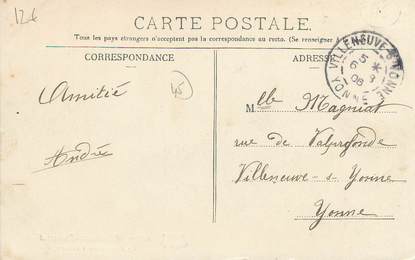 12€
CARTE POSTALE.
Tous les pays étrangers n'acceptent pas la correspondance au recto. (Se renseigner
CORRESPONDANCE
ADRESSE
VILLENEUVE-S-YONNE
YONNE
45
Amitié
André
Mlle Magniat
rue de Valprofonde
Villeneuve-s-Yonne
Yonne